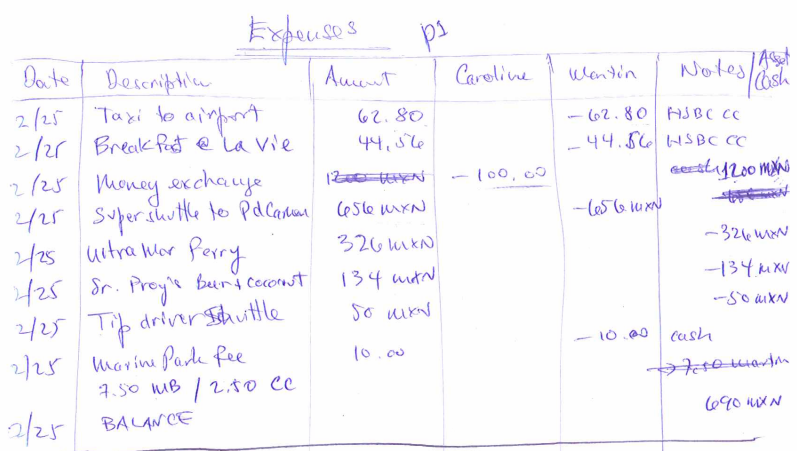 Expenses p1
Date Description Amount Caroline Martin Notes/Asset Cash
2/25 Taxi to airport 62.80 -62.80 HSBC CC
2/25 Breakfast @ La Vie 44.56 -44.56 HSBC CC
2/25 Money exchange 1200 MXN -100.00 cash 1200 MXN
2/25 Supershuttle to PdCarmen 656 MXN -656 MXN
2/25 UltraMar Ferry 326 MXN -326 MXN
2/25 Sr. Frog's Beer + coconut 134 MXN -134 MXN
2/25 Tip driver Shuttle 50 MXN -50 MXN
2/25 Marine Park Fee 10.00 -10.00 cash
7.50 MB / 2.50 CC → 7.50 Martin
2/25 BALANCE 690 MXN